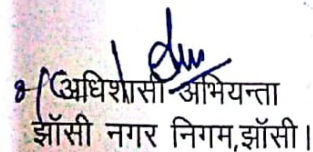 (अधिशासी अभियन्ता
झॉसी नगर निगम,झॉसी।